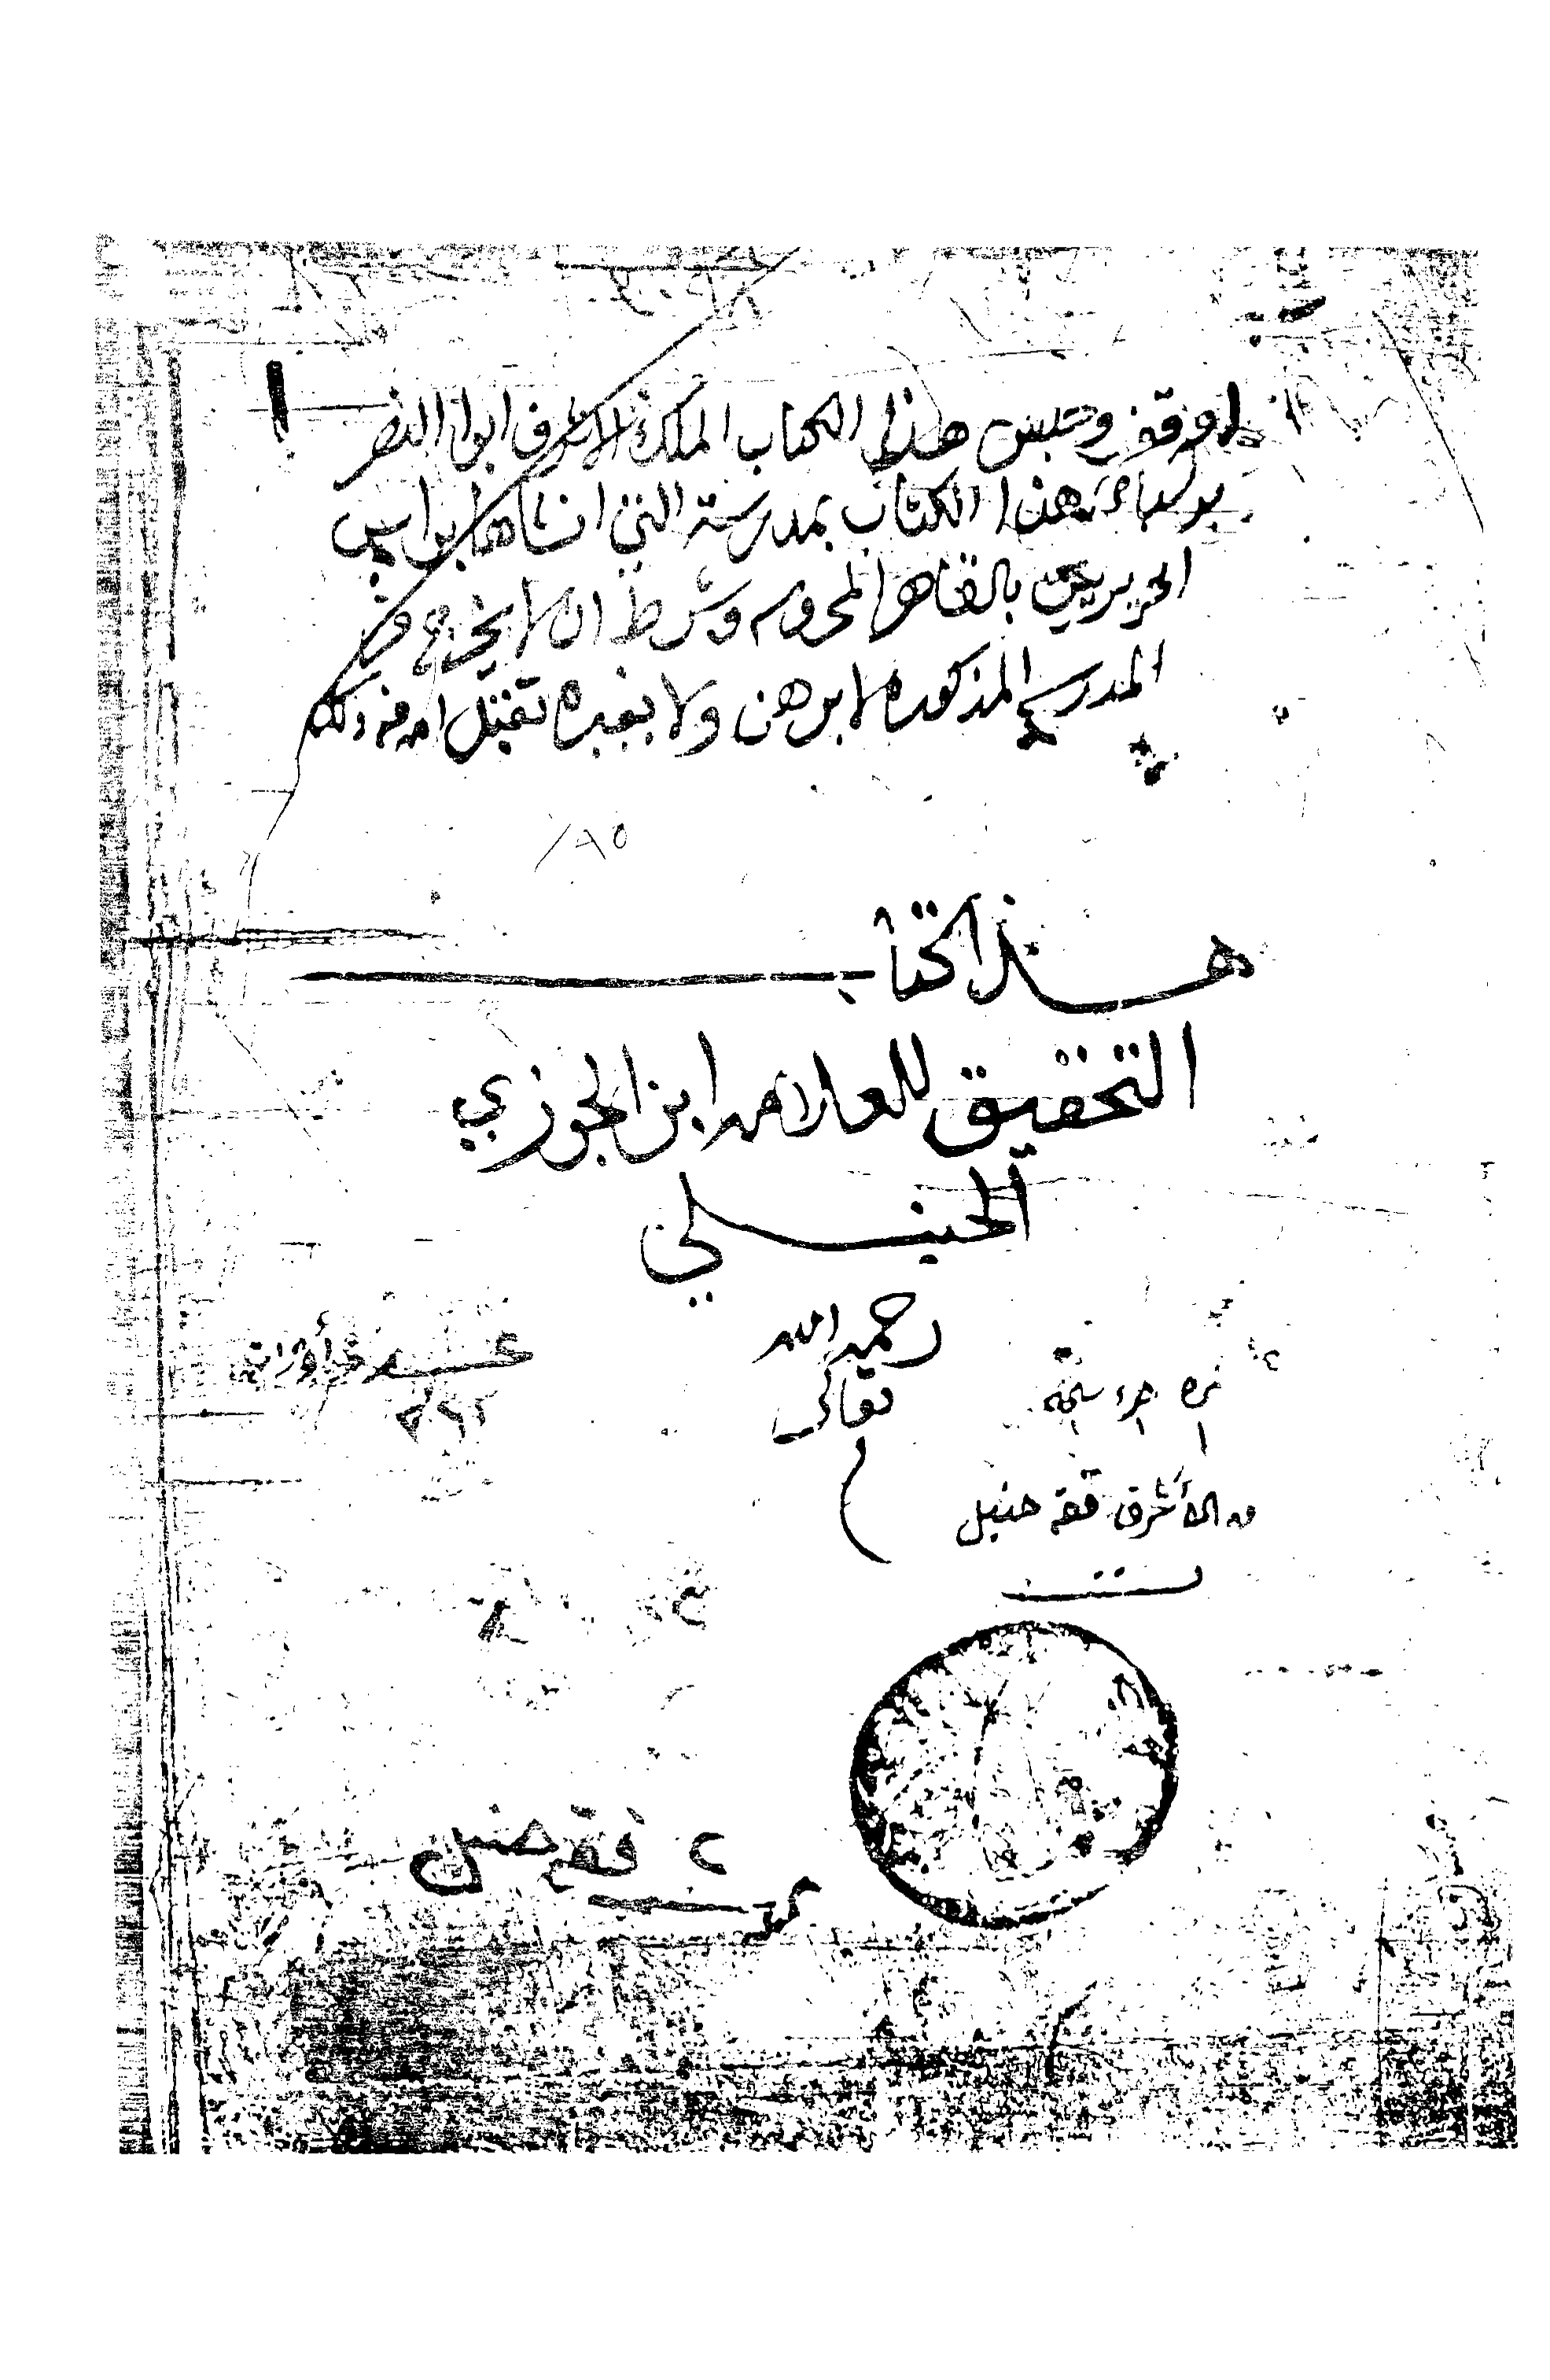 اوقف وحبس هذا الكتاب الملك الاشرف ابوا النصر
برسباى هذا الكتاب بمدرسته التي انشاها براس
الحريريين بالقاهرا المحروسه وشرط ان لا يخرج من
المدرسه المذكوره لا برهن ولا بغيره تقبل الله منه ذلك
٧٨٥
هذا كتاب
التحقيق للعلامه ابن الجوزي
الحنبلي
رحمه الله
تعالى
عدد أوراقه
نمره اجزاء
من الأشرف فقه حنبل
٢ فقه حنبل